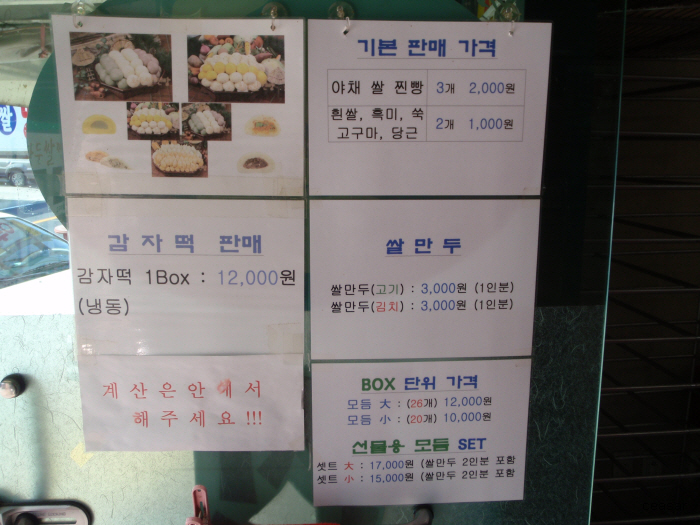 쌀
감자떡 판매
감자떡 1Box : 12,000원
(냉동)
계산은안에서
해주세요!!!
기본 판매 가격
야채 쌀 찐빵 3개 2,000원
흰쌀, 흑미, 쑥
고구마, 당근 2개 1,000원
쌀만두
쌀만두(고기) : 3,000원 (1인분)
쌀만두(김치) : 3,000원 (1인분)
BOX 단위 가격
모듬 大 : (26개) 12,000원
모듬 小 : (20개) 10,000원
선물용 모듬 SET
셋트 大 : 17,000원 (쌀만두 2인분 포함
셋트 小 : 15,000원 (쌀만두 2인분 포함